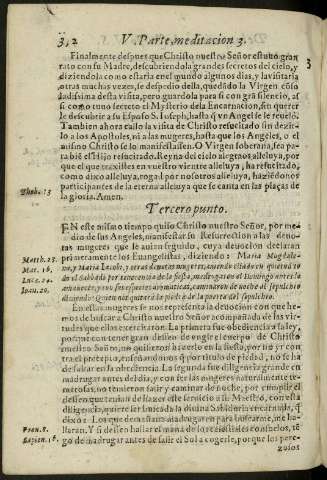 342 V. Parte, meditacion 3.
Finalmente despues que Christo nuestro Señor estuvo gran
rato con su Madre, descubriendola grandes secretos del cielo, y
diziendola como estaria en el mundo algunos dias, y la visitaria
otras muchas vezes, se despedio della, quedando la Virgen
dissima desta visita, pero guardola para si con grã silencio, al
si como tuvo secreto el Mysterio dela Encarnacion, sin querer
le descubrir a su Esposo S. Ioseph, hasta q̃ vn Angel se le reuelò.
Tambien ahora callò la visita de Christo resucitado sin dezir
lo a los Apostoles, ni a las mugeres, hasta que los Angeles, o el
mismo Christo se lo manifestassen. O Virgen soberana, sea pa
ra biē el Hijo resucitado. Reyna del cielo alegraos alleluya, por
que el que traxistes en vuestro vientre alleluya, ha resucitado,
como dixo alleluya, rogad por nosotros alleluya, haziēdo nos
participantes de la eterna alleluya que se canta en las plaças de
la gloria. Amen.
Thob. 13
Tercero punto.
EN este mismo tiempo quiso Christo nuestro Señor, por me
dio de sus Angeles, manifestar su Resurreccion a las deuo
tas mugeres que le auian seguido, cuya deuocion declaran
primeramente los Euangelistas, diziendo: Maria Magdale
na, y Maria Iacobi, y otras deuotas mugeres,
Matth. 28.
Mar. 16.
Luc. 24.
Ioan. 20.
diziendo: Quien nos quitarà la piedra de la puerta del sepulchro.
En estas mugeres se nos representa la deuocion con que he
mos de buscar a Christo nuestro Señor acompañada de las vir
tudes que ellas exercitaron. La primera fue obediencia a la ley,
porque con tener gran desseo de vngir el cuerpo de Christo
nuestro Señor, no quisieron hazerlo en la fiesta, por no yr con
tra el precepto, enseñandonos q̃ por titulo de piedad, no se ha
de faltar en la obediencia. La segunda fue diligencia grande en
madrugar antes del dia, y con ser las mugeres naturalmente te
merosas, no temieron salir y caminar de noche, por cumplir el
desseo que tenian de hazer este seruicio a su Maestro, con esta
diligencia, quiere ser buscada la diuina Sabiduria encarnada, q̃
dixo: Los que de mañana madrugaren para buscarme, me ha
llaran. Y si dessean hallar el manà de los celestiales consuelos, tē
go de madrugar antes de salir el Sol a cogerle, porque los pere-
Prou. 8.
Sapien. 16.
zosos